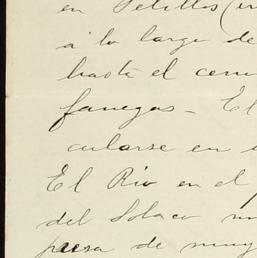 en Petillos (en
a lo largo de
hasta el cerr
fanegas - El
cularse en
El Rio en el
del Sobaco un
presa de muy